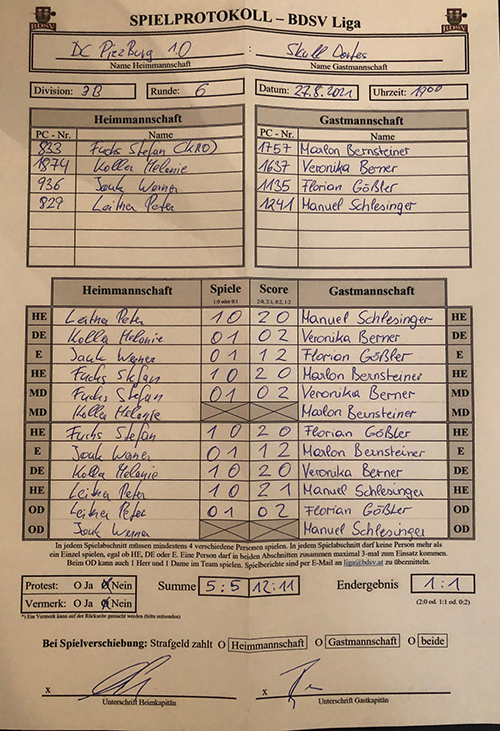 SPIELPROTOKOLL – BDSV Liga
DC PizzBurg 10 Skull Dartes
Name Heimmannschaft Name Gastmannschaft
Division: 3B Runde: 6 Datum: 27.8.2021 Uhrzeit: 1900
Heimmannschaft Gastmannschaft
PC - Nr. Name PC - Nr. Name
833 Fuchs Stefan (KRO) 1757 Marlon Bernsteiner
1874 Koller Melanie 1637 Veronika Berner
936 Jauk Werner 1135 Florian Gößler
829 Leitner Peter 1241 Manuel Schlesinger
Heimmannschaft Spiele Score Gastmannschaft
1:0 oder 0:1 2:0, 2:1, 0:2, 1:2
HE Leitner Peter 1 0 2 0 Manuel Schlesinger HE
DE Koller Melanie 0 1 0 2 Veronika Berner DE
E Jauk Werner 0 1 1 2 Florian Gößler E
HE Fuchs Stefan 1 0 2 0 Marlon Bernsteiner HE
MD Fuchs Stefan 0 1 0 2 Veronika Berner MD
MD Koller Melanie Marlon Bernsteiner MD
HE Fuchs Stefan 1 0 2 0 Florian Gößler HE
E Jauk Werner 0 1 1 2 Marlon Bernsteiner E
DE Koller Melanie 1 0 2 0 Veronika Berner DE
HE Leitner Peter 1 0 2 1 Manuel Schlesinger HE
OD Leitner Peter 0 1 0 2 Florian Gößler OD
OD Jauk Werner Manuel Schlesinger OD
In jedem Spielabschnitt müssen mindestens 4 verschiedene Personen spielen. In jedem Spielabschnitt darf keine Person mehr als
ein Einzel spielen, egal ob HE, DE oder E. Eine Person darf in beiden Abschnitten zusammen maximal 3-mal zum Einsatz kommen.
Beim OD kann auch 1 Herr und 1 Dame im Team spielen. Spielberichte sind per E-Mail an liga@bdsv.at zu übermitteln.
Protest: O Ja O Nein Summe 5:5 12:11 Endergebnis 1:1
Vermerk: O Ja O Nein (2:0 od. 1:1 od. 0:2)
*) Ein Vermerk kann auf der Rückseite gemacht werden (bitte mitsenden)
Bei Spielverschiebung: Strafgeld zahlt O Heimmannschaft O Gastmannschaft O beide
x x
Unterschrift Heimkapitän Unterschrift Gastkapitän